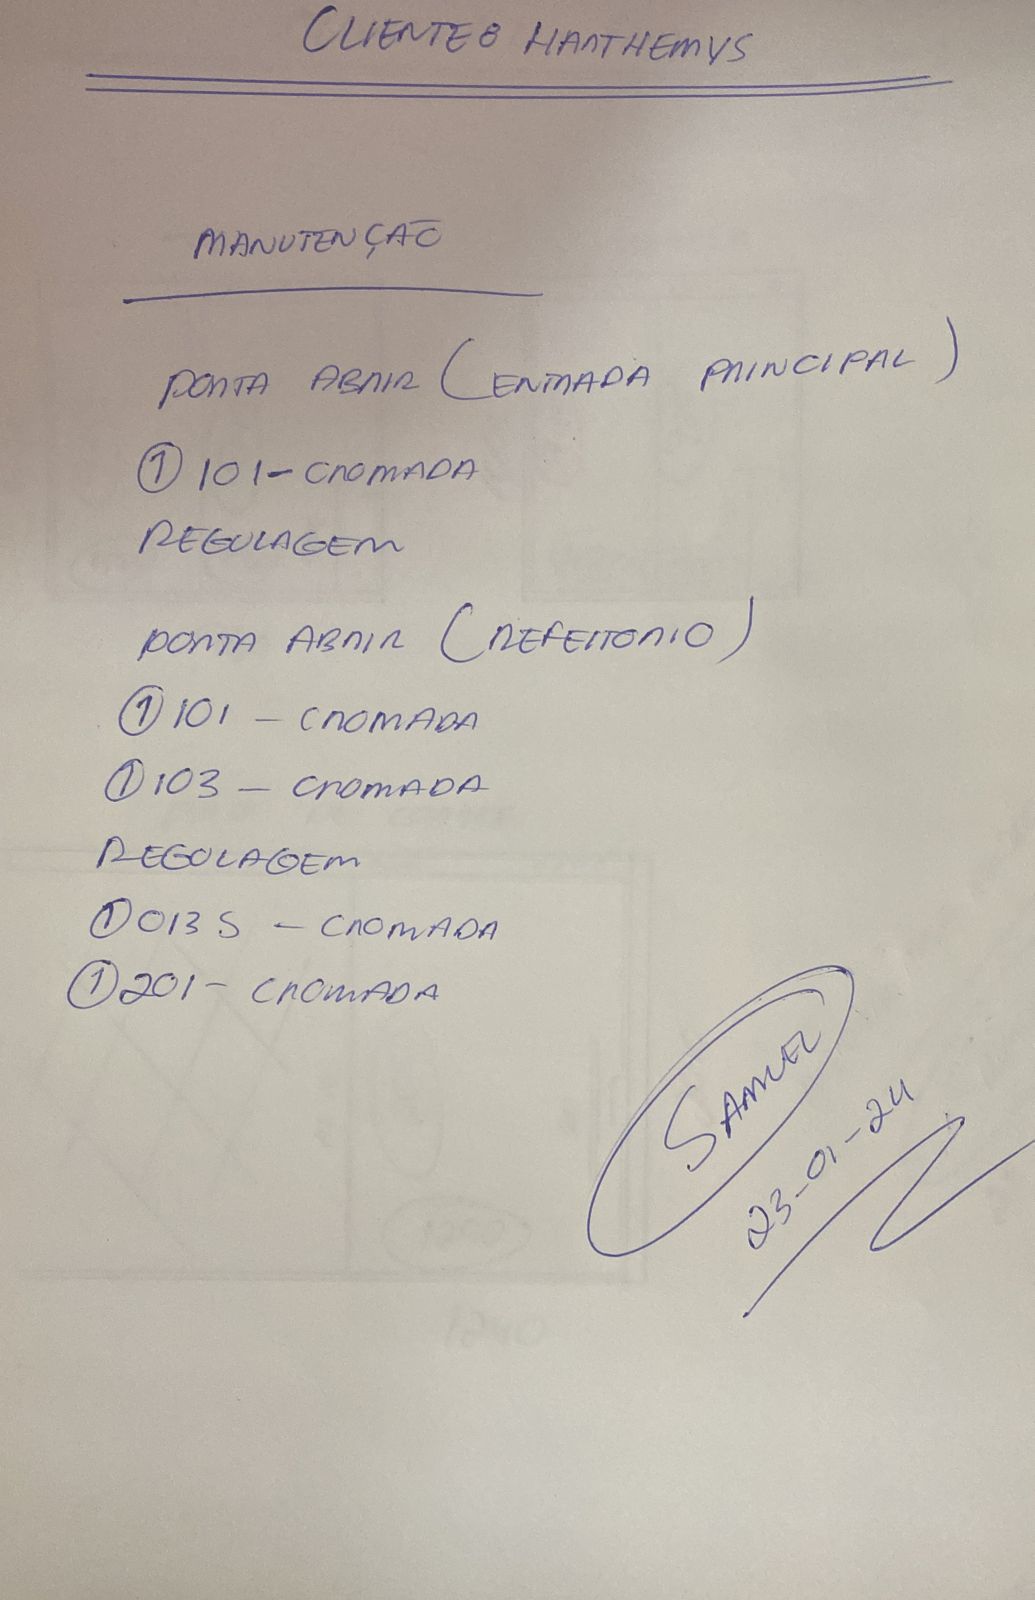 CLIENTE: HARTHEMUS
MANUTENÇÃO
PORTA ABRIR (ENTRADA PRINCIPAL)
① 101 - CROMADA
REGULAGEM
PORTA ABRIR (REFEITORIO)
① 101 - CROMADA
① 103 - CROMADA
REGULAGEM
① 013 S - CROMADA
① 201 - CROMADA
SAMUEL
23-01-24